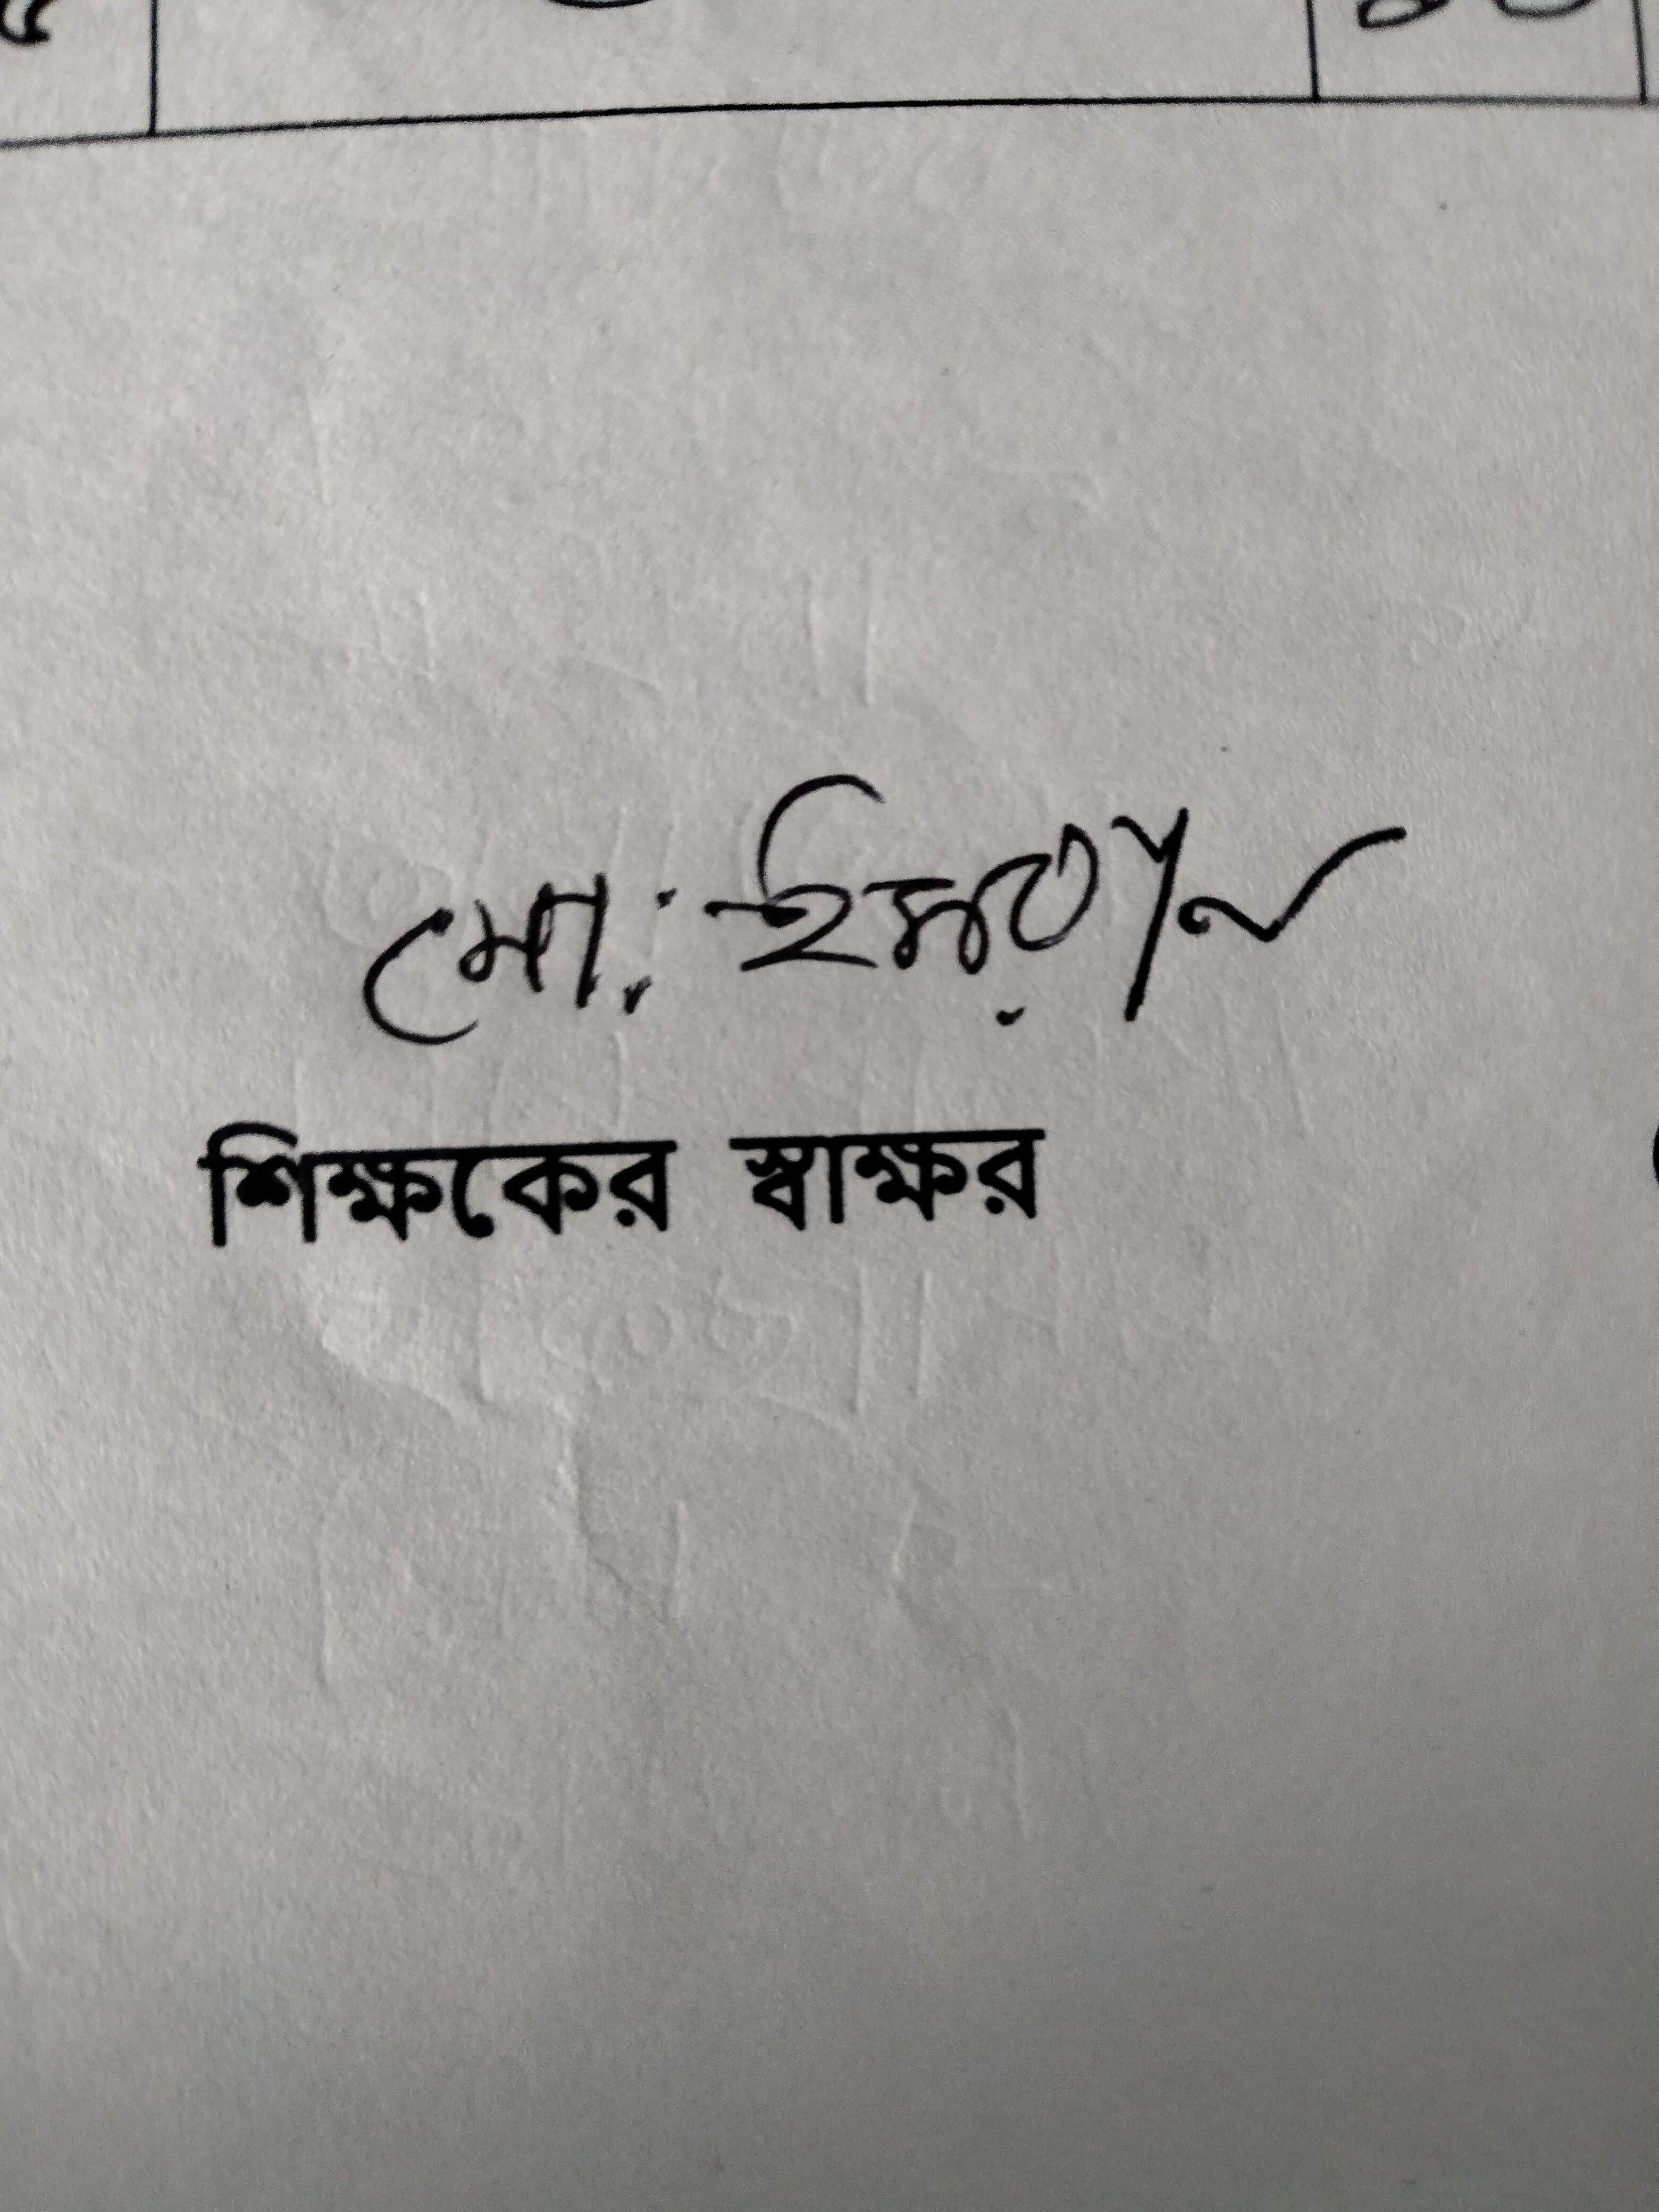 মো: ইমরান
শিক্ষকের স্বাক্ষর